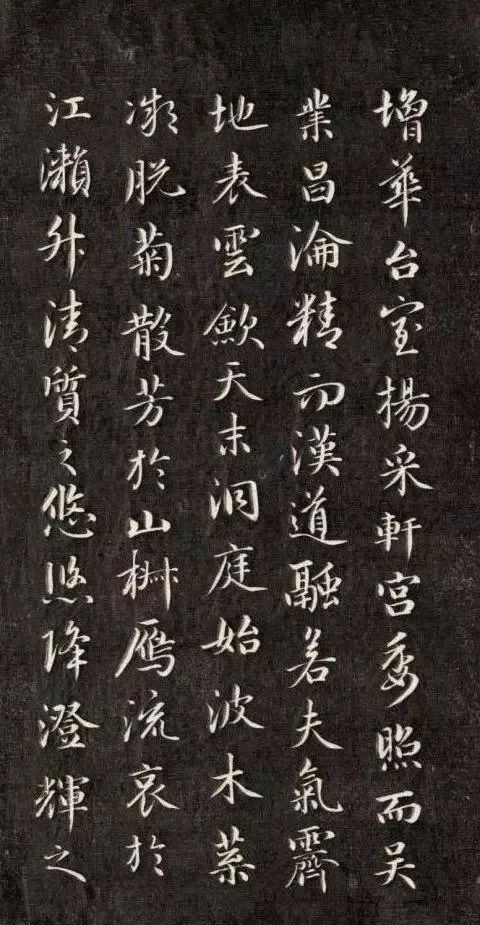 增華台室揚采軒宮委照而吳
業昌淪精而漢道融若夫氣霽
地表雲歛天末洞庭始波木葉
微脫菊散芳於山椒鴈流哀於
江瀨升清質之悠悠降澄輝之